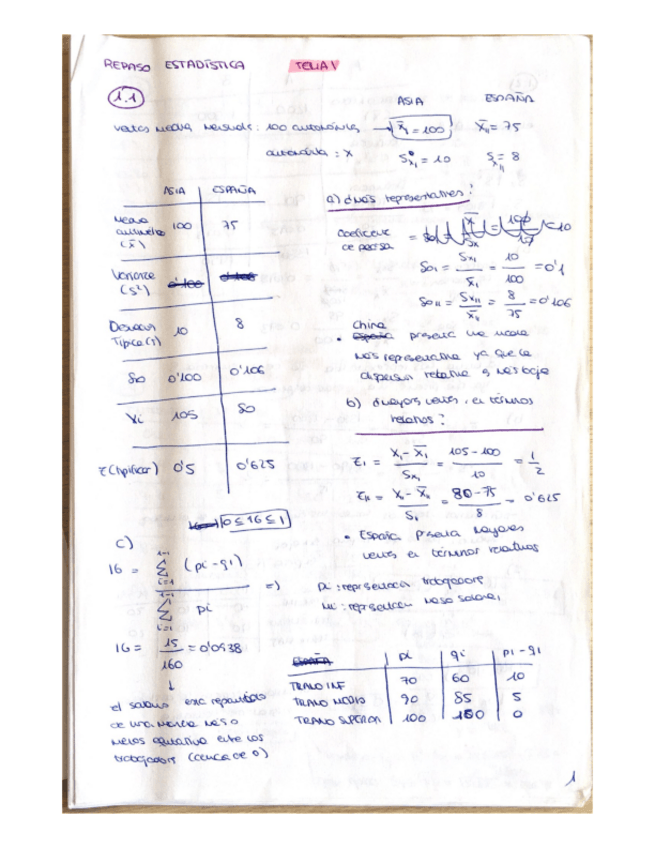 REPASO ESTADÍSTICA TEMA 1
1.1
ASIA ESPAÑA
ventas media mensuales: 100 automóvil → x̄₁ = 100 x̄ₙ = 75
automóvil: x Sx₁ = 10 Sxₙ = 8
ASIA ESPAÑA
Media
(x̄) 100 75
Varianza
(S²) 0'100 0'106
Desviac
Típica (s) 10 8
So 0'100 0'106
Xi 105 80
z (tipificar) 0'5 0'625
a) ¿más representativa?
coeficiente
de pearson
So₁ = Sx₁ / x̄₁ = 10 / 100 = 0'1
Soₙ = Sxₙ / x̄ₙ = 8 / 75 = 0'106
China
• España presenta una media
más representativa ya que la
dispersión relativa es más baja
b) ¿mayores ventas, en términos
relativos?
z₁ = X₁ - x̄₁ / Sx₁ = 105 - 100 / 10 = 1/2
zₙ = X - x̄ₙ / Sₙ = 80 - 75 / 8 = 0'625
• España presenta mayores
ventas en términos relativos
0 ≤ IG ≤ 1
c)
IG = Σ (pi - qi) / Σ pi =>
i=1
pi: representación trabajadores
: representación masa salarial
IG = 15 / 160 = 0'0938
↓
el salario está repartido
de una manera más o
menos equitativa entre los
trabajadores (cerca de 0)
ESPAÑA pi qi pi - qi
TRAMO INF 70 60 10
TRAMO MEDIO 90 85 5
TRAMO SUPERIOR 100 100 0
1